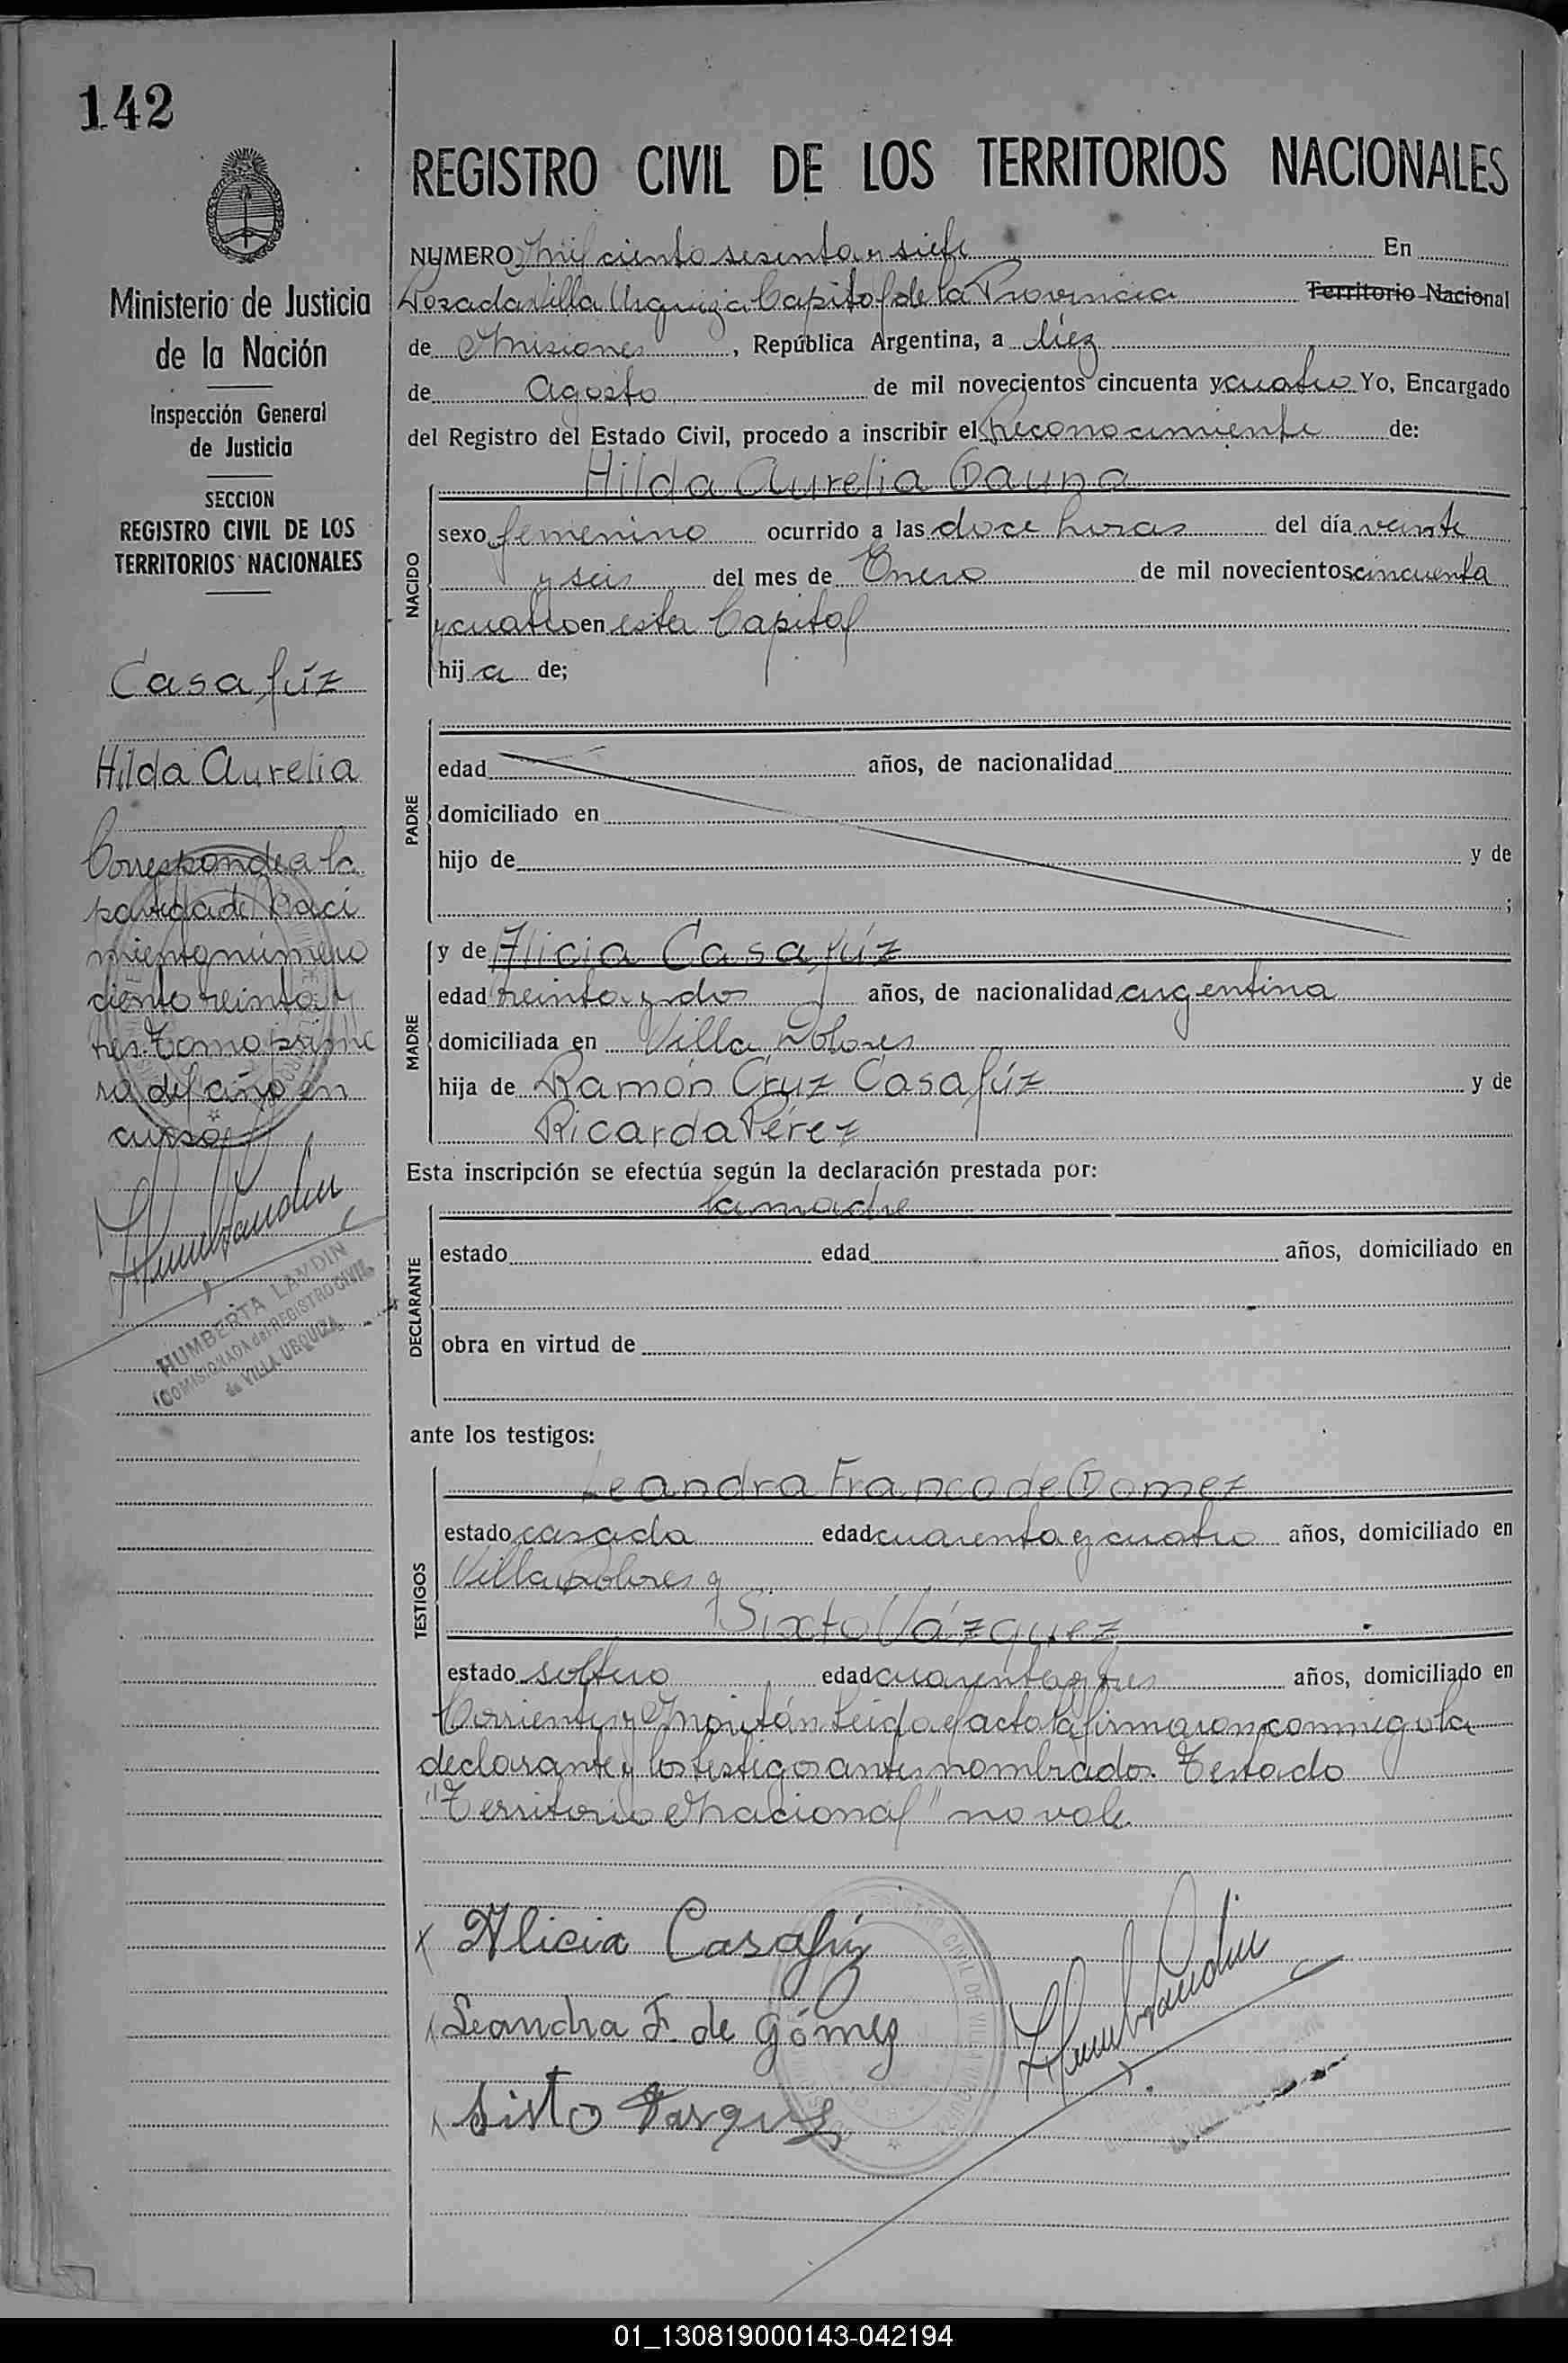 142
Ministerio de Justicia
de la Nación
Inspección General
de Justicia
SECCION
REGISTRO CIVIL DE LOS
TERRITORIOS NACIONALES
Casafúz
Hilda Aurelia
Corresponde a la
partida de Naci
miento número
ciento treinta y
tres. Tomo prime
ro del año en
curso
HUMBERTA LANDIN
COMISIONADA del REGISTRO CIVIL
de VILLA URQUIZA
REGISTRO CIVIL DE LOS TERRITORIOS NACIONALES
NUMERO Mil ciento sesenta y siete En
Posadas Villa Urquiza Capital de la Provincia Territorio Nacional
de Misiones, República Argentina, a diez
de Agosto de mil novecientos cincuenta y cuatro Yo, Encargado
del Registro del Estado Civil, procedo a inscribir el Reconocimiento de:
Hilda Aurelia Gauna
NACIDO
sexo femenino ocurrido a las doce horas del día veinte
y seis del mes de Enero de mil novecientos cincuenta
y cuatro en esta Capital
hija de;
PADRE
edad años, de nacionalidad
domiciliado en
hijo de y de
;
MADRE
y de Alicia Casafúz
edad treinta y dos años, de nacionalidad argentina
domiciliada en Villa Dolores
hija de Ramón Cruz Casafúz y de
Ricarda Pérez
Esta inscripción se efectúa según la declaración prestada por:
la madre
DECLARANTE
estado edad años, domiciliado en
obra en virtud de
ante los testigos:
TESTIGOS
Leandra Franco de Gomez
estado casada edad cuarenta y cuatro años, domiciliado en
Villa Dolores y
Sixto Vázquez
estado soltero edad cuarenta y tres años, domiciliado en
Corrientes y Moritán. Leida el acta la firmaron conmigo la
declarante y los testigos antes nombrados. Testado
"Territorio Nacional" no vale.
x Alicia Casafúz
x Leandra F. de Gómez
x Sisto Vasques
01_130819000143-042194